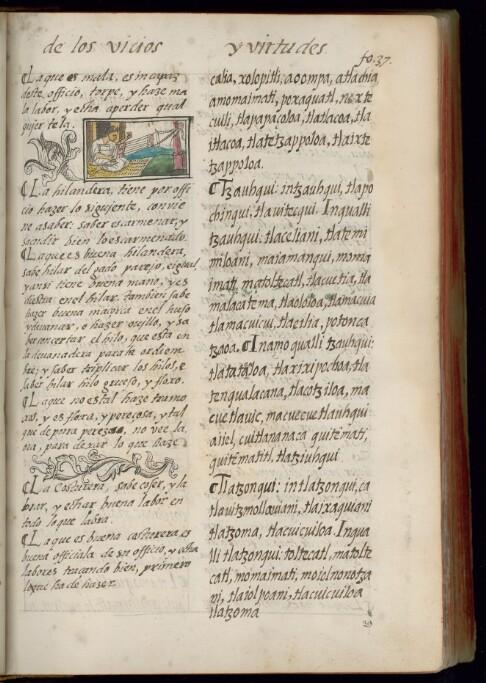 de los vicios
y virtudes
fo. 37.
La que es mala, es incapaz
deste officio, torpe, y haze ma
la labor, y echa a perder qual
quier tela.
La hilandera, tiene por offi
cio hazer lo siguiente, convie
ne a saber: saber escarmenar, y
sacudir bien lo escarmenado.
La que es buena hilandera,
sabe hilar delgado parejo, e igual
y ansi tiene buena mano, y es
diestra en el hilar. tambien sabe
hazer buena maçorca en el huso
y devanar, o hazer ovillo, y sa
ber concertar el hilo, que esta en
la devanadera para la ordiem
bre; y saber triplicar los hilos, e
saber hilar hilo grueso, y floxo.
La que no es tal haze tramo
jos, y es floxa, y perezosa, y tal
que de pura pereza no vee la
na, para dexar lo que haze
La Costurera, sabe coser, y la
brar, y echar buena labor en
todo lo que labra.
La que es buena costurera es
buena officiala de su officio, y echa
labores traçando bien, primero
lo que ha de hazer.
calia, xolopitli, aoompa,
amomaimati, poxaquatl,
cuili, tlapapaçoloa, tlatlacoa, tla
itlacoa, tlatetzappoloa, tlaixte
tzappoloa.
Tzauhqui: in tzauhqui, tlapo
chinqui, tlavitecqui. In qualli
tzauhqui: tlaceliani, tlatemi
miloani, maiamanqui, moma
imati, matoltecatl, tlacuetia, tla
malacatema, tlaololoa, tlamacuia
tlamacuicui, tlaeilia, potonca
tzaoa. In amo qualli tzauhqui:
tlatatiloa, tlaxixipochoa, tla
tenqualacana, tlacotziloa, ma
cuetlauic, macuecuetlauhqui
aiiel, cuitlananaca quitemati,
quitematitl, tlatziuhqui
Tlatzonqui: in tlatzonqui, ca
tlavitzmollouiani, tlaixaquani
tlatzoma, tlacuicuiloa. In qua
lli tlatzonqui: toltecatl, matolte
catl, momaimati, moiolnonotza
ni, tlaiolpoani, tlacuicuiloa
tlatzoma